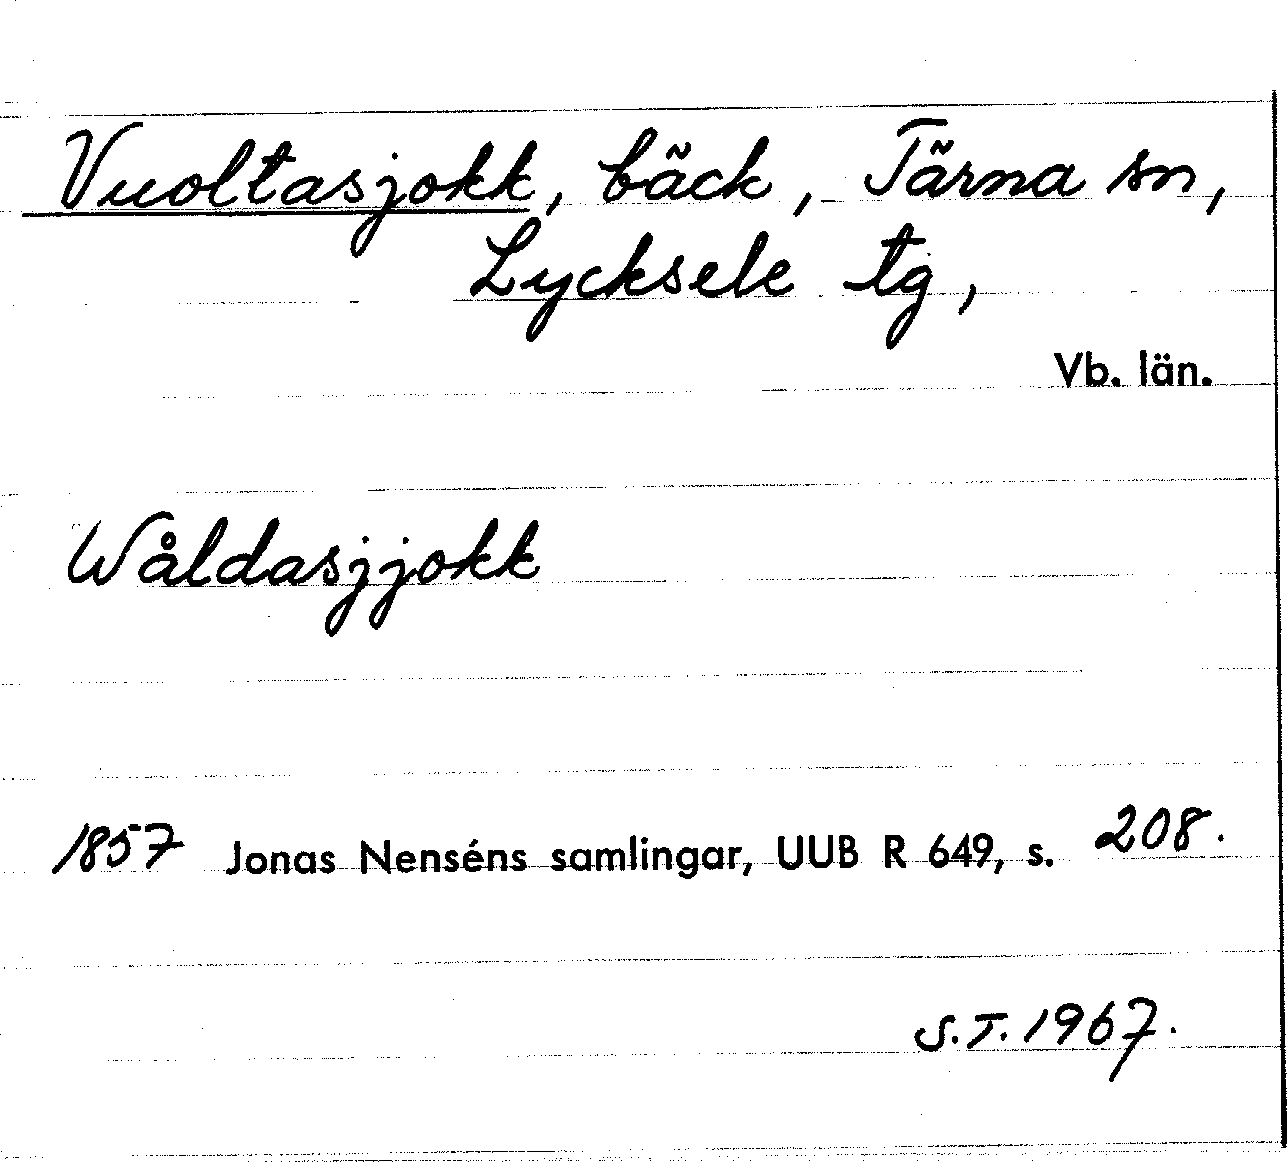 Vuoltasjokk, bäck, Tärna sn,
Lycksele tg,
Vb. län.
Wåldasjjokk
1857 Jonas Nenséns samlingar, UUB R 649, s. 208.
S.T. 1967.